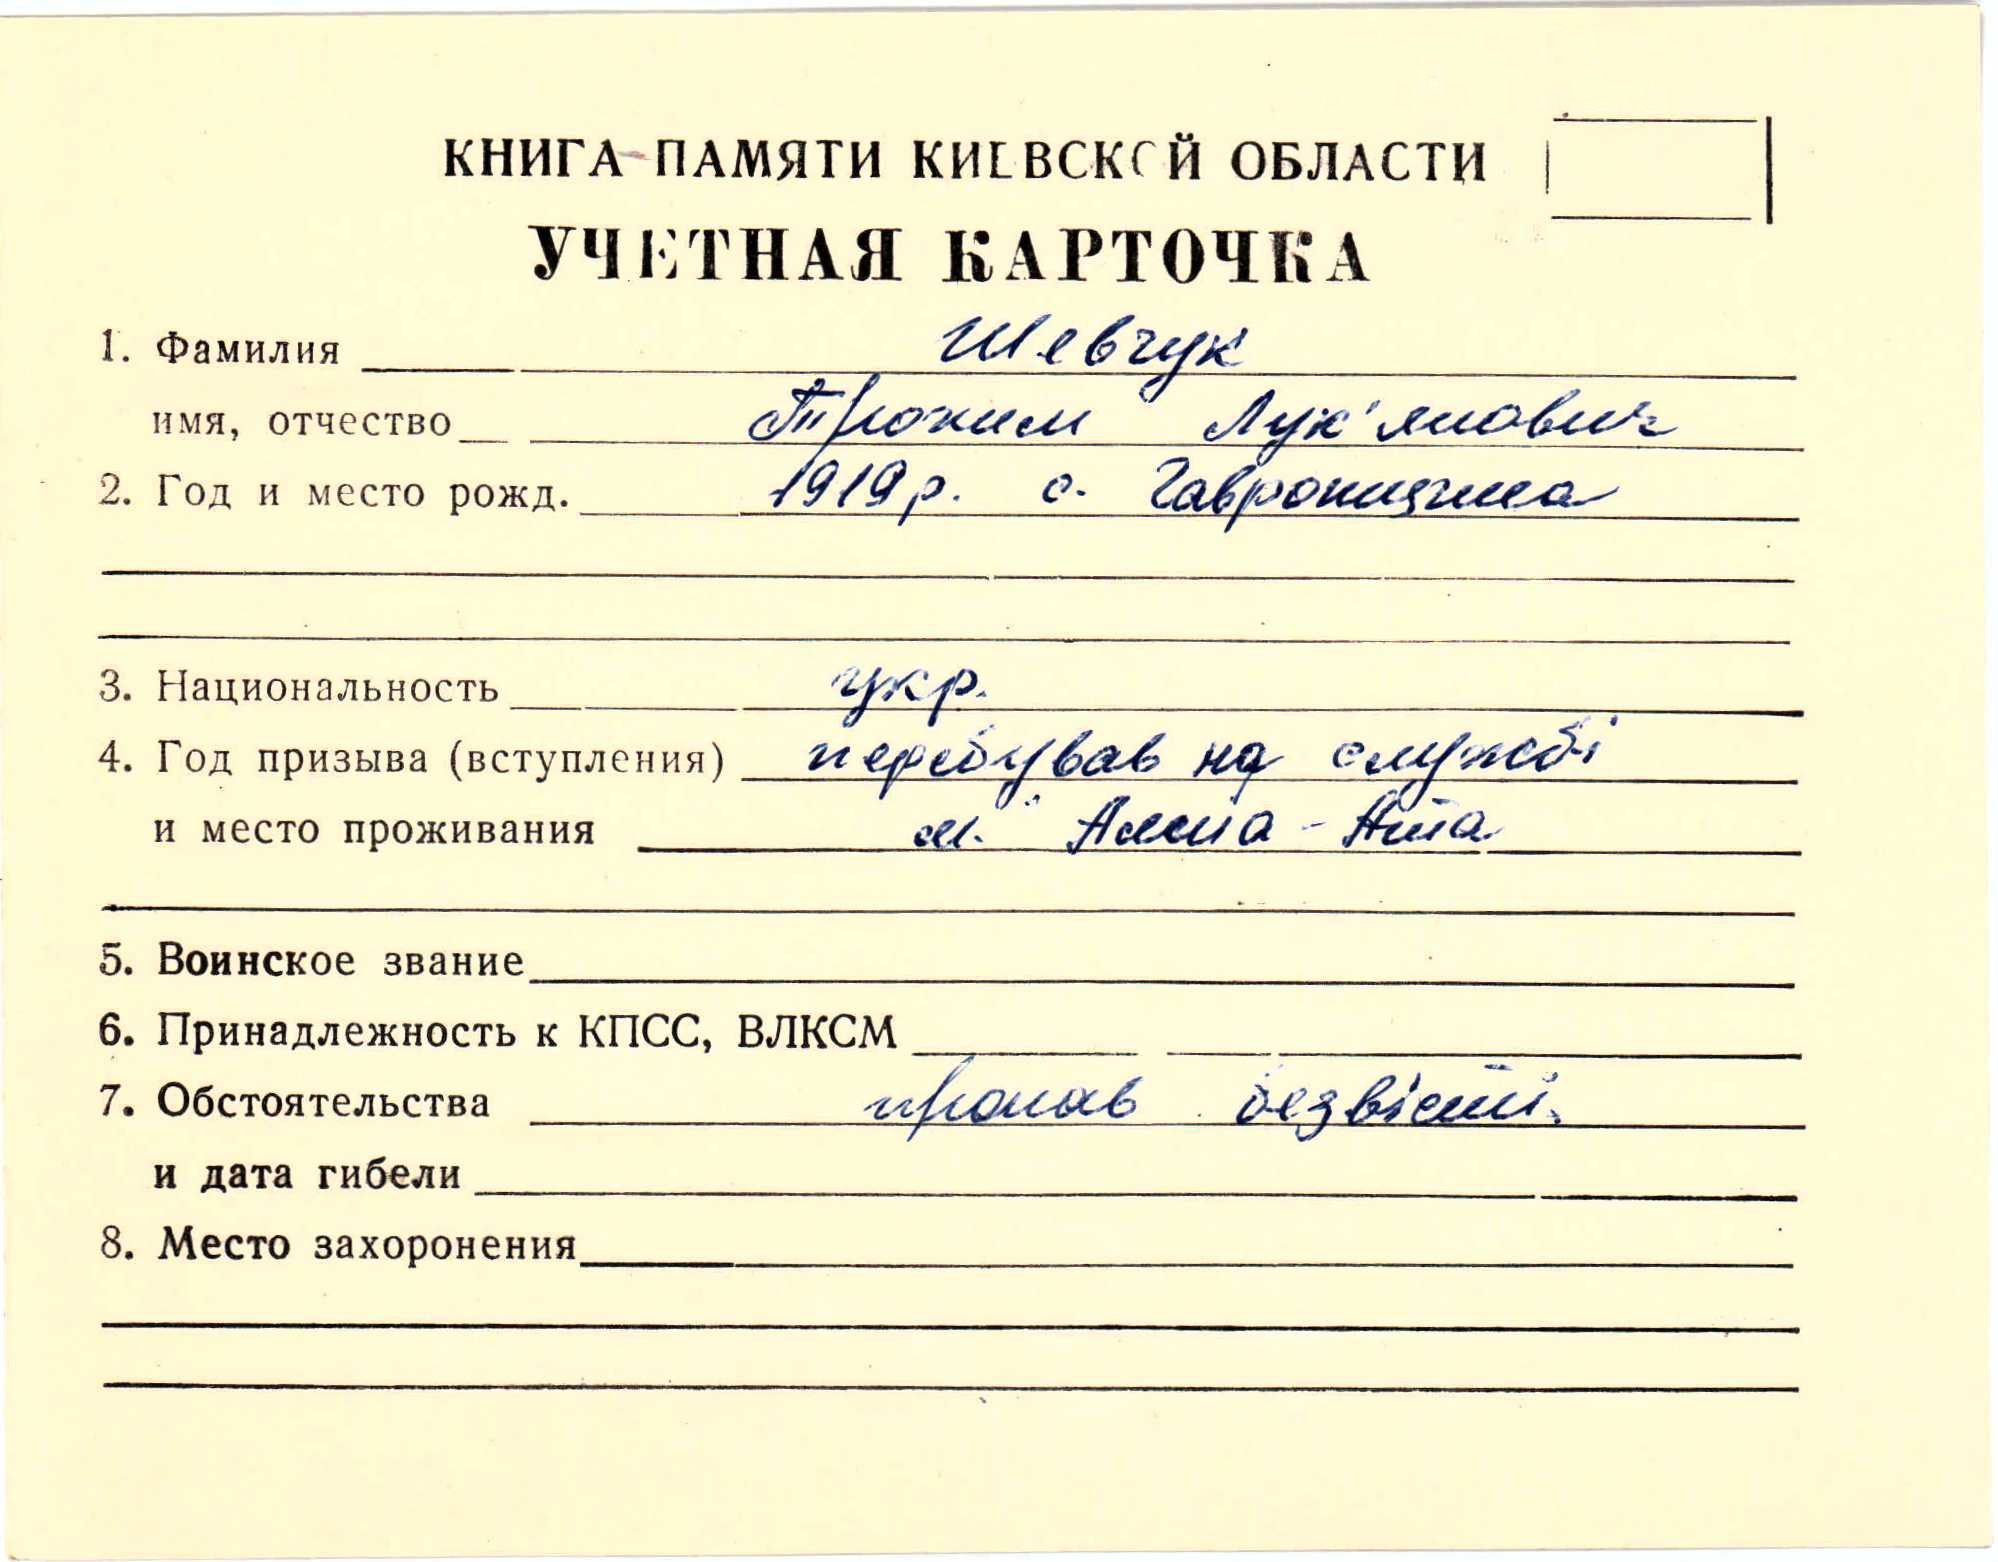 КНИГА-ПАМЯТИ КИЕВСКОЙ ОБЛАСТИ
УЧЕТНАЯ КАРТОЧКА
1. Фамилия Шевчук
имя, отчество Трохим Лук'янович
2. Год и место рожд. 1919 р. с. Гавронщина
3. Национальность укр.
4. Год призыва (вступления) перебував на службі
и место проживания м. Алма-Ата
5. Воинское звание
6. Принадлежность к КПСС, ВЛКСМ
7. Обстоятельства пропав безвісти.
и дата гибели
8. Место захоронения